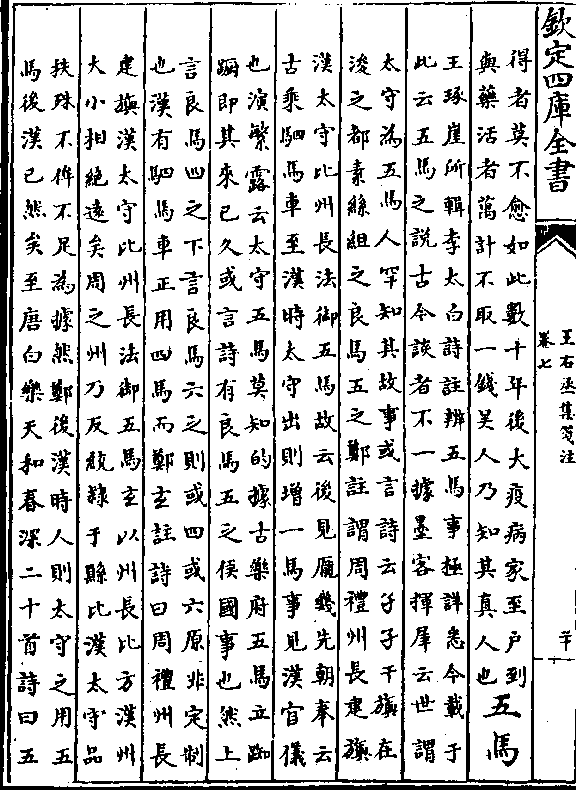 欽定四庫全書
王右丞集箋注
卷七
二十
得者莫不愈如此數十年後大疫病家至戸到
與藥活者萬計不取一錢吴人乃知其真人也
五馬
王琢崖所輯李太白詩註辨五馬事極詳悉今載于
此云五馬之説古今談者不一據墨客揮犀云世謂
太守為五馬人罕知其故事或言詩云孑孑干旟在
浚之都素絲組之良馬五之鄭註謂周禮州長建旟
漢太守比州長法御五馬故云後見龎幾先朝奉云
古乘駟馬車至漢時太守出則增一馬事見漢官儀
也演繁露云太守五馬莫知的據古樂府五馬立踟
蹰即其來已久或言詩有良馬五之侯國事也然上
言良馬四之下言良馬六之則或四或六原非定制
也漢有駟馬車正用四馬而鄭玄註詩曰周禮州長
建旟漢太守比州長法御五馬玄以州長比方漢州
大小相絶遠矣周之州乃反統隷于縣比漢太守品
扶殊不侔不足為據然鄭後漢時人則太守之用五
馬後漢已然矣至唐白樂天和春深二十首詩曰五